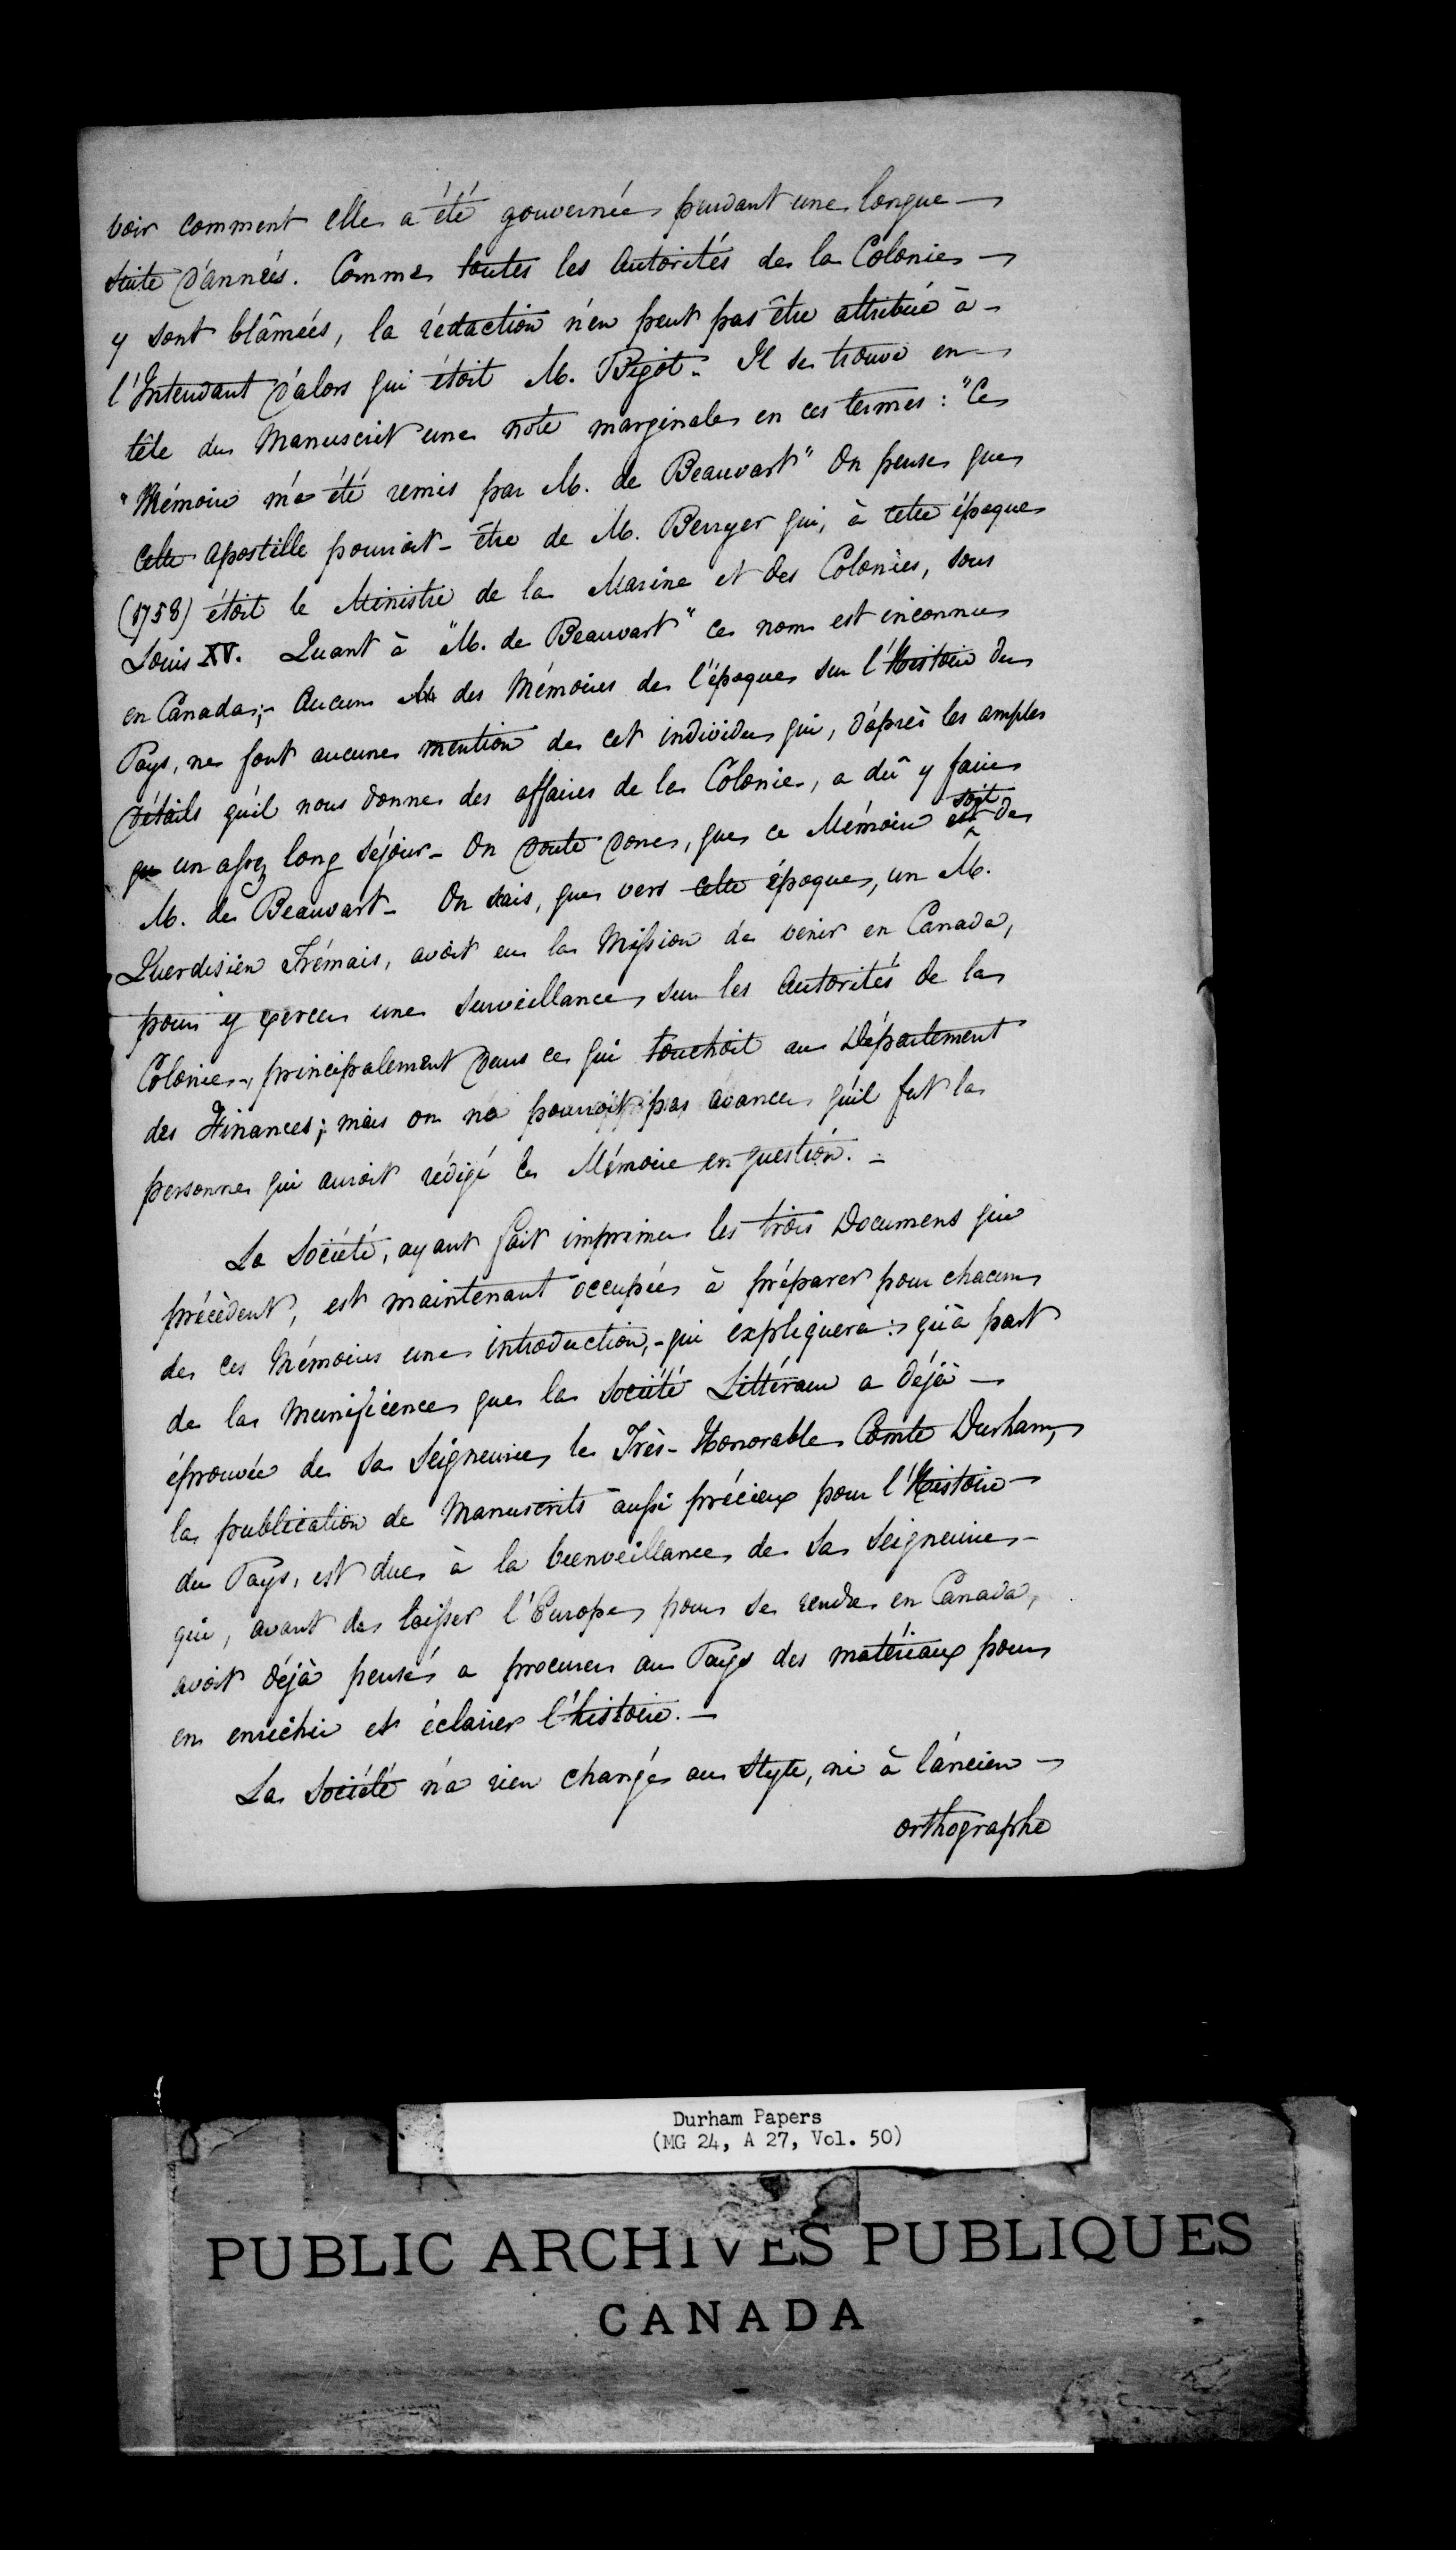 voir comment elle a été gouvernée pendant une longue
suite d'années. Comme toutes les Autorités de la Colonie
y sont blâmées, la rédaction n'en peut pas être attribuée à
l'Intendant d'alors qui étoit M. Bigot. Il se trouve en
tête du Manuscrit une note marginale en ces termes : "Ce
"Mémoire m'a été remis par M. de Beauvart" On pense que
cette apostille pourroit-être de M. Berryer qui, à cette époque
(1758) étoit le Ministre de la Marine et des Colonies, sous
Louis XV. Quant à "M. de Beauvart" ce nom est inconnu
en Canada;- Aucun des Mémoires de l'époque sur l'Histoire du
Pays, ne font aucune mention de cet individu qui, d'après les amples
détails qu'il nous donne des affaires de la Colonie, a dû y faire
un assez long séjour- On doute donc, que ce Mémoire soit de
M. de Beauvart- On sais, que vers cette époque, un M.
Querdisien Trémais, avoit eu la Mission de venir en Canada,
pour y exercer une surveillance sur les Autorités de la
Colonie, principalement dans ce qui touchoit au Département
des Finances; mais on ne pourroit pas avancer qu'il fut la
personne qui auroit rédigé le Mémoire en question.-
La Société, ayant fait imprimer les trois Documens qui
précèdent, est maintenant occupée à préparer pour chacun
de ces Mémoires une introduction,- qui expliquera: qu'à part
de la Munificence que la Société Littéraire a déjà
éprouvée de Sa Seigneurie, le Très-Honorable Comte Durham,
la publication de Manuscrits aussi précieux pour l'Histoire
du Pays, est due à la bienveillance de Sa Seigneurie
qui, avant de laisser l'Europe pour se rendre en Canada,
avoit déjà pensé a procurer au Pays des matériaux pour
en enrichir et éclairer l'histoire.-
La Société n'a rien changé au Style, ni à l'ancien
orthographe
Durham Papers
(MG 24, A 27, Vol. 50)
PUBLIC ARCHIVES PUBLIQUES
CANADA